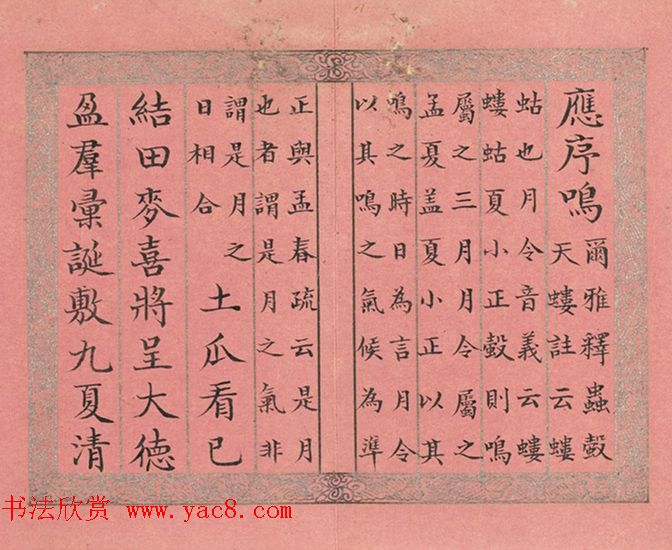 應序鳴
爾雅釋蟲螜
天螻註云螻
蛄也月令音義云螻
螻蛄夏小正螜則鳴
屬之三月月令屬之
孟夏盖夏小正以其
鳴之時日為言月令
以其鳴之氣候為準
正與孟春疏云是月
也者謂是月之氣非
謂是月之
日相合
土瓜看已
結田麥喜將呈大德
盈羣彙誕敷九夏清
书法欣赏 www.yac8.com